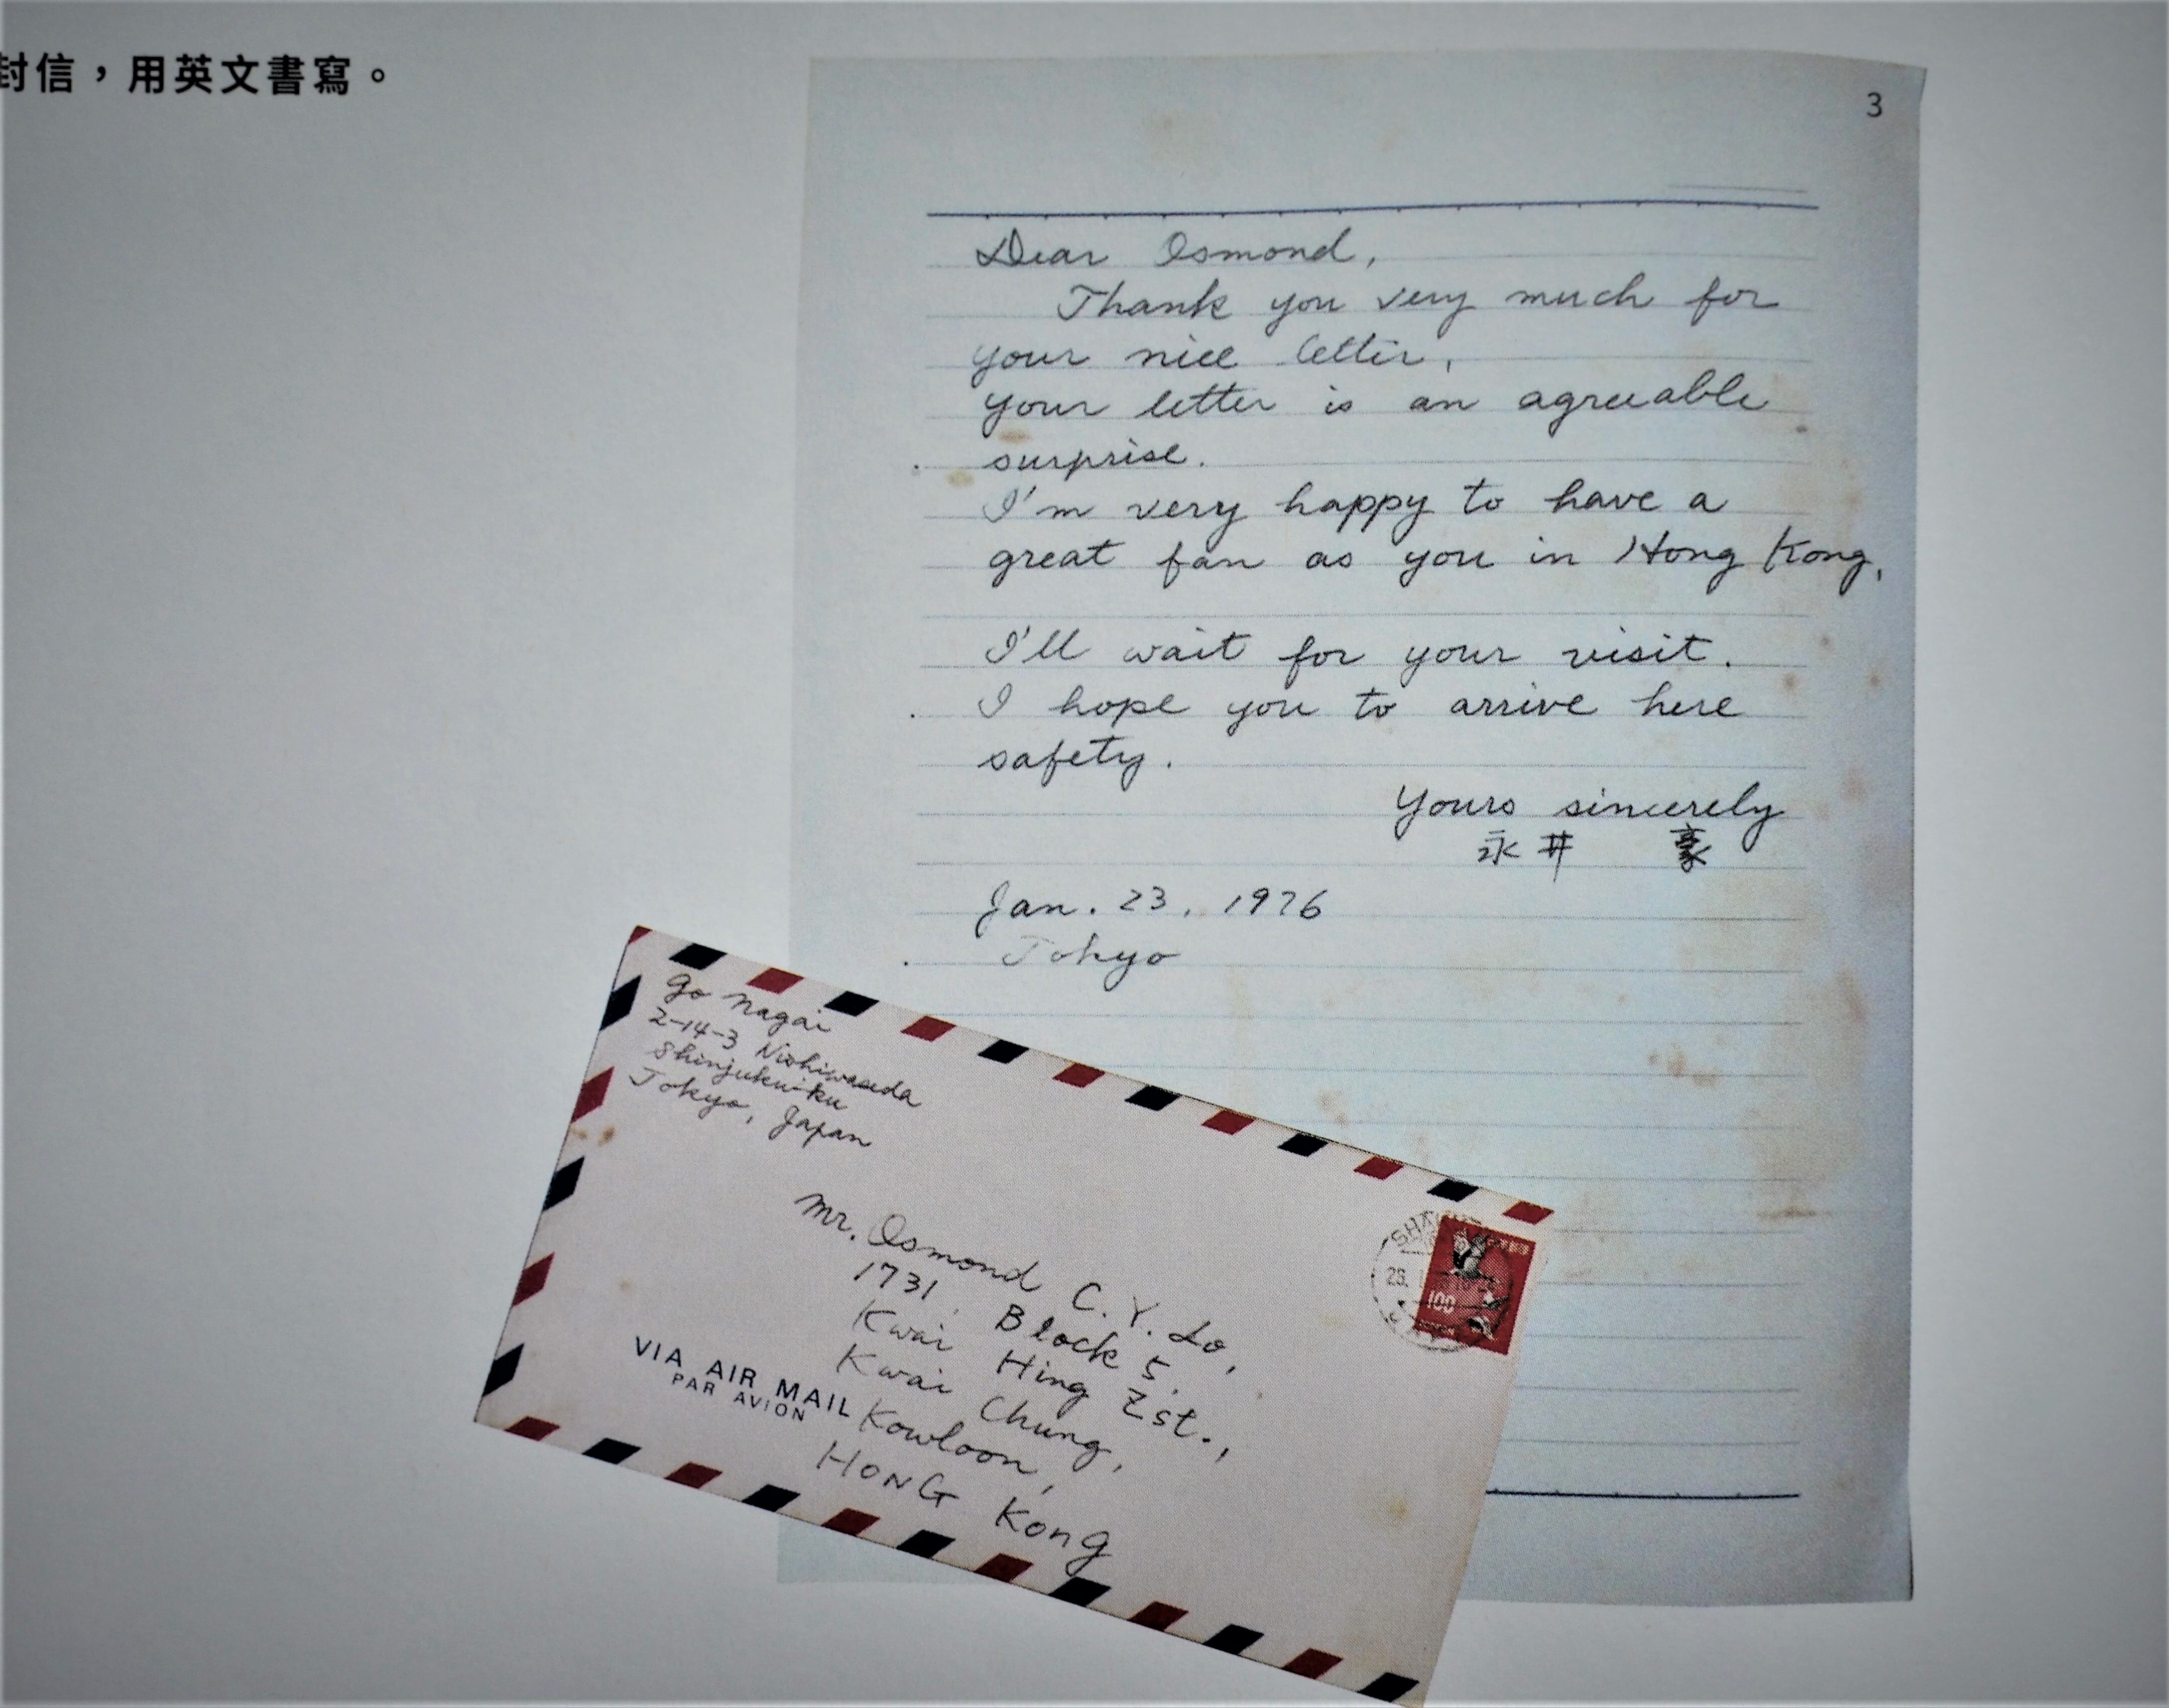 封信，用英文書寫。
3
Dear Osmond,
Thank you very much for
your nice letter,
your letter is an agreeable
surprise.
I'm very happy to have a
great fan as you in Hong Kong,
I'll wait for your visit.
I hope you to arrive here
safety.
Yours sincerely
永井 豪
Jan. 23, 1976
Tokyo
Go Nagai
2-14-3 Nishiwaseda
Shinjuku-ku
Tokyo, Japan
Mr. Osmond C. Y. Lo,
1731, Block 5,
Kwai Hing Est.,
Kwai Chung,
Kowloon,
HONG Kong
VIA AIR MAIL
PAR AVION
100